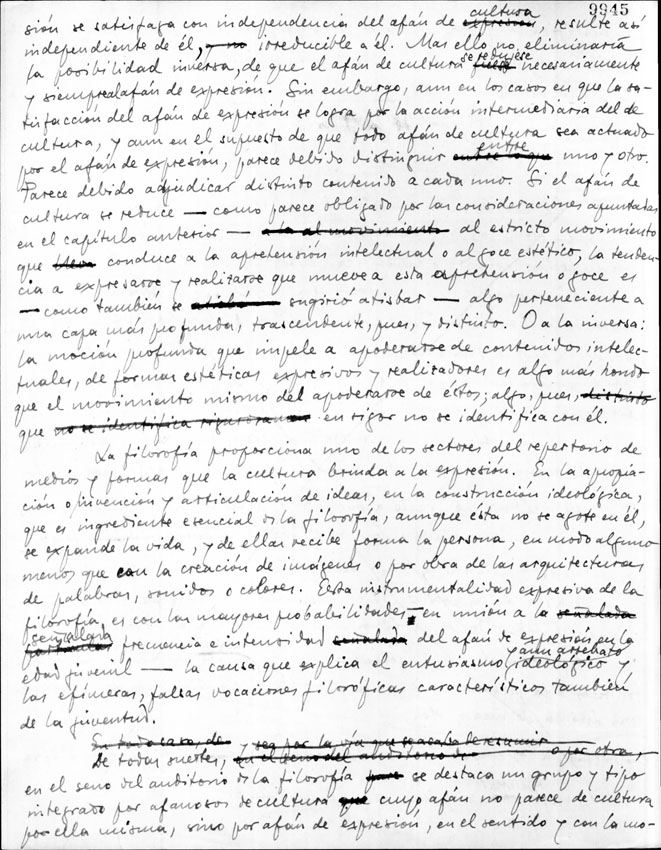 9945
sión se satisfaga con independencia del afán de cultura, resulte así
independiente de él, irreducible a él. Mas ello no eliminaría
la posibilidad inversa, de que el afán de cultura se redujese necesariamente
y siempre al afán de expresión. Sin embargo, aun en los casos en que la sa-
tisfacción del afán de expresión se logra por la acción intermediaria del de
cultura, y aun en el supuesto de que todo afán de cultura sea actuado
por el afán de expresión, parece debido distinguir entre uno y otro.
Parece debido adjudicar distinto contenido a cada uno. Si el afán de
cultura se reduce — como parece obligado por las consideraciones apuntadas
en el capítulo anterior — al estricto movimiento
que conduce a la aprehensión intelectual o al goce estético, la tenden-
cia a expresarse y realizarse que mueve a esta aprehensión o goce es
— como también se sugirió atisbar — algo perteneciente a
una capa más profunda, trascendente, pues, y distinto. O a la inversa:
la moción profunda que impele a apoderarse de contenidos intelec-
tuales, de formas estéticas expresivos y realizadores es algo más hondo
que el movimiento mismo del apoderarse de éstos; algo, pues,
que en rigor no se identifica con él.
La filosofía proporciona uno de los sectores del repertorio de
medios y formas que la cultura brinda a la expresión. En la apropia-
ción o invención y articulación de ideas, en la construcción ideológica,
que es ingrediente esencial de la filosofía, aunque ésta no se agote en él,
se expande la vida, y de ellas recibe forma la persona, en modo alguno
menos que con la creación de imágenes o por obra de las arquitecturas
de palabras, sonidos o colores. Esta instrumentalidad expresiva de la
filosofía es con las mayores probabilidades — en unión a la
señalada frecuencia e intensidad del afán de expresión en la
edad juvenil — la causa que explica el entusiasmo y aun arrebato ideológico y
las efímeras, falsas vocaciones filosóficas característicos también
de la juventud.
De todas suertes,
en el seno del auditorio de la filosofía se destaca un grupo y tipo
integrado por afanosos de cultura cuyo afán no parece de cultura
por ella misma, sino por afán de expresión, en el sentido y con la mo-